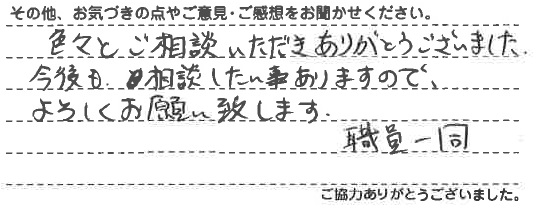 その他、お気づきの点やご意見・ご感想をお聞かせください。
色々とご相談いただきありがとうございました.
今後も、相談したい事ありますので、
よろしくお願い致します.
職員一同
ご協力ありがとうございました。